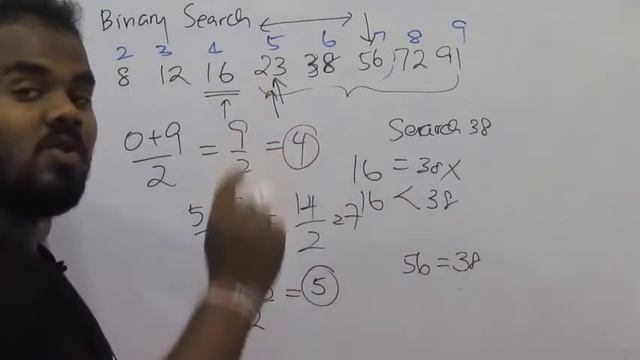 Binary Search
2 3 4 5 6 7 8 9
8 12 16 23 38 56, 72 91
0+9/2 = 9/2 = 4
Search 38
16 = 38 x
16 < 38
5 = 14/2 = 7
56 = 38
2 = 5